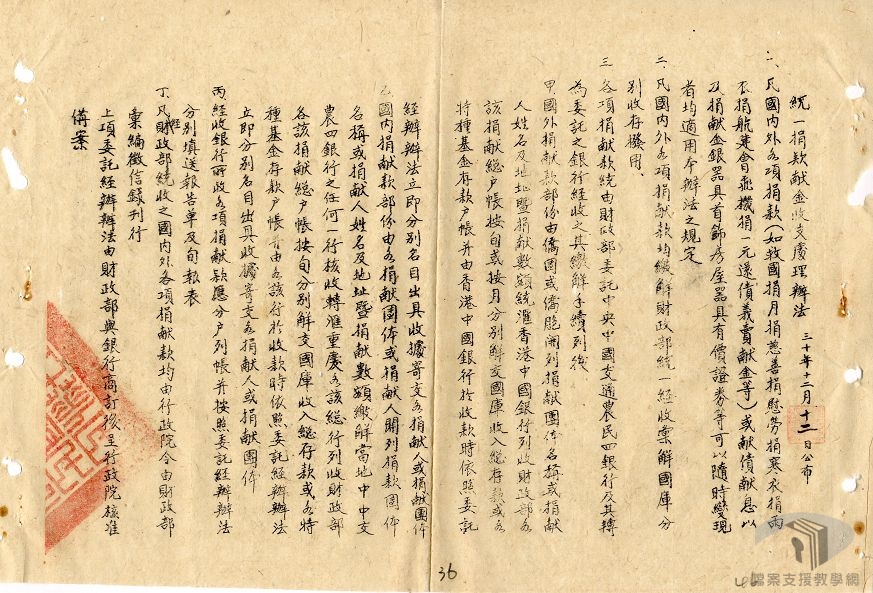 統一捐款献金收支處理辦法 三十年十二月十二日公布
一、民國內外各項捐款(如救國捐月捐慈善捐慰勞捐寒衣捐雨
衣捐航建會飛機捐一元還債義賣献金等)或献債献息以
及捐献金銀器具首飾房屋器具有價證券等可以隨時變現
者均適用本辦法之規定
二、凡國內外各項捐献款均繳解財政部統一經收彙解國庫分
別收存撥用
三、各項捐献款統由財政部委託中央中國交通農民四銀行及其轉
為委託之銀行經收之其繳解手續列後
甲國外捐献款部份由僑團或僑胞開列捐献團体名稱或捐献
人姓名及地址暨捐献數額統滙香港中國銀行列收財政部各
該捐献總户帳按旬或按月分別解交國庫收入總存款或各
特種基金存款户帳并由香港中國銀行於收款時依照委託
經辦辦法立即分別名目出具收據寄交各捐献人或捐献團体
乙國內捐献款部份由各捐献團体或捐献人開列捐款團体
名稱或捐献人姓名及地址暨捐献數額繳解當地中中交
農四銀行之任何一行核收轉滙重慶各該總行列收財政部
各該捐献總户帳按旬分別解交國庫收入總存款或各特
種基金存款户帳并由各該行於收款時依照委託經辦辦法
立即分別名目出具收據寄交各捐献人或捐献團体
丙經收銀行所收各項捐献款應分户列帳并按照委託經辦辦法
分別填送報告單及旬報表
丁凡經財政部統收之國內外各項捐献款均由行政院令由財政部
彙編徵信錄刊行
上項委託經辦辦法由財政部與銀行商訂後呈行政院核准
備案
36
檔案支援教學網